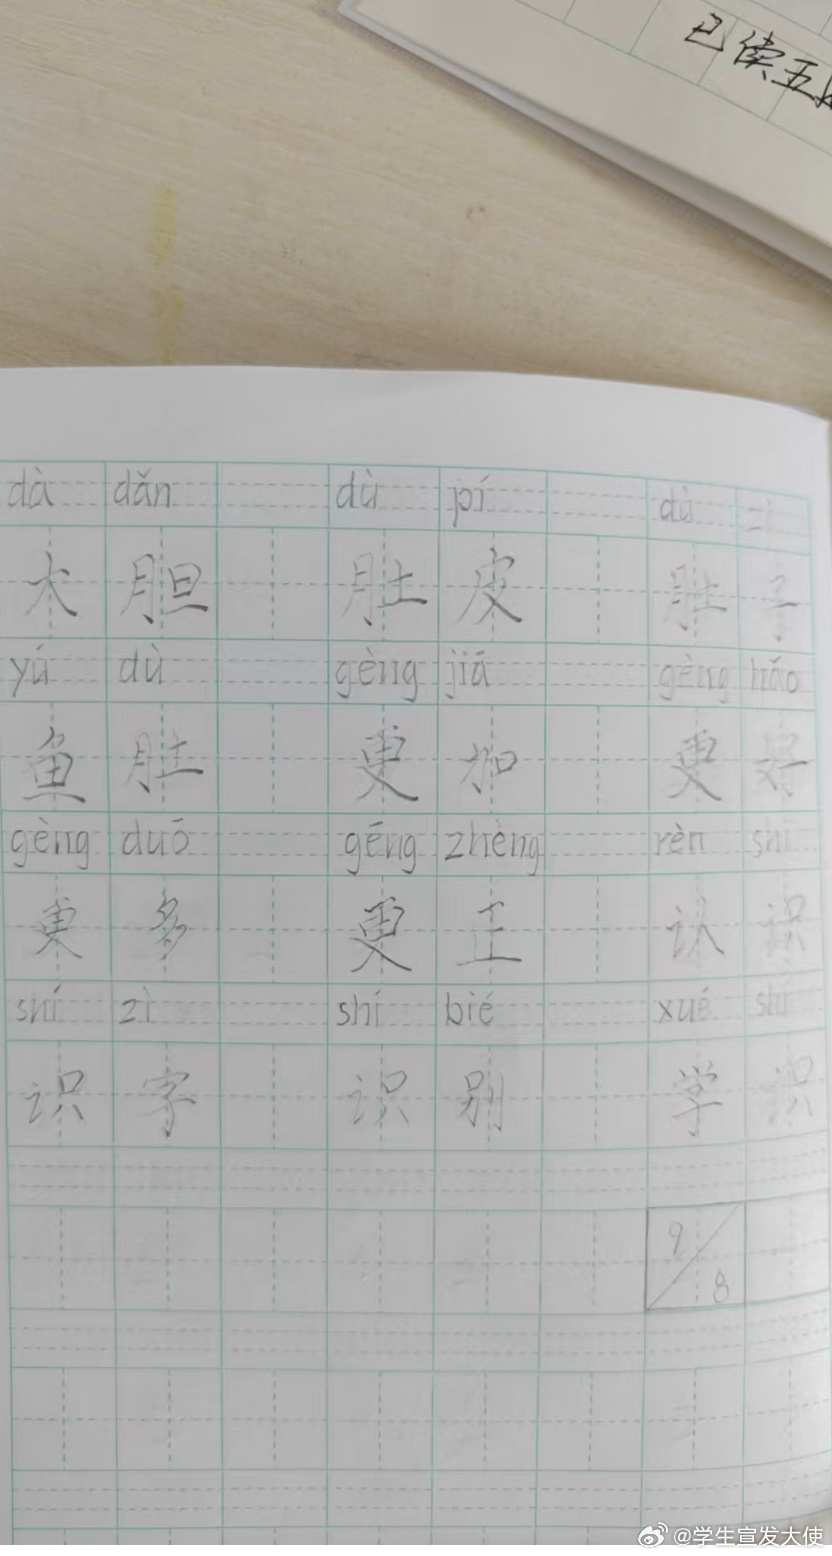 已读五
dà dǎn dù pí dù zi
大胆 肚皮 肚子
yú dù gèng jiā gèng hǎo
鱼肚 更加 更好
gèng duō gēng zhèng rèn shi
更多 更正 认识
shí zì shí bié xué shí
识字 识别 学识
9/8
@学生宣发大使